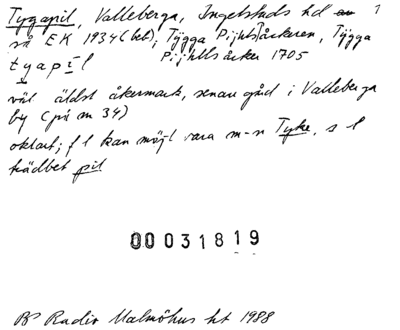 Tygapil, Valleberga, Ingelstads hd 1
så EK 1934 (bet); Tÿgga Pijhlsåckeren, Tÿgga
tygapīl Pijhlls åcker 1705
väl äldst åkermark, senare gård i Valleberga
by (på m 34)
oklart; f l kan möjl vara m-n Tyke, s l
trädbet pil
00031819
BP Radio Malmöhus ht 1988